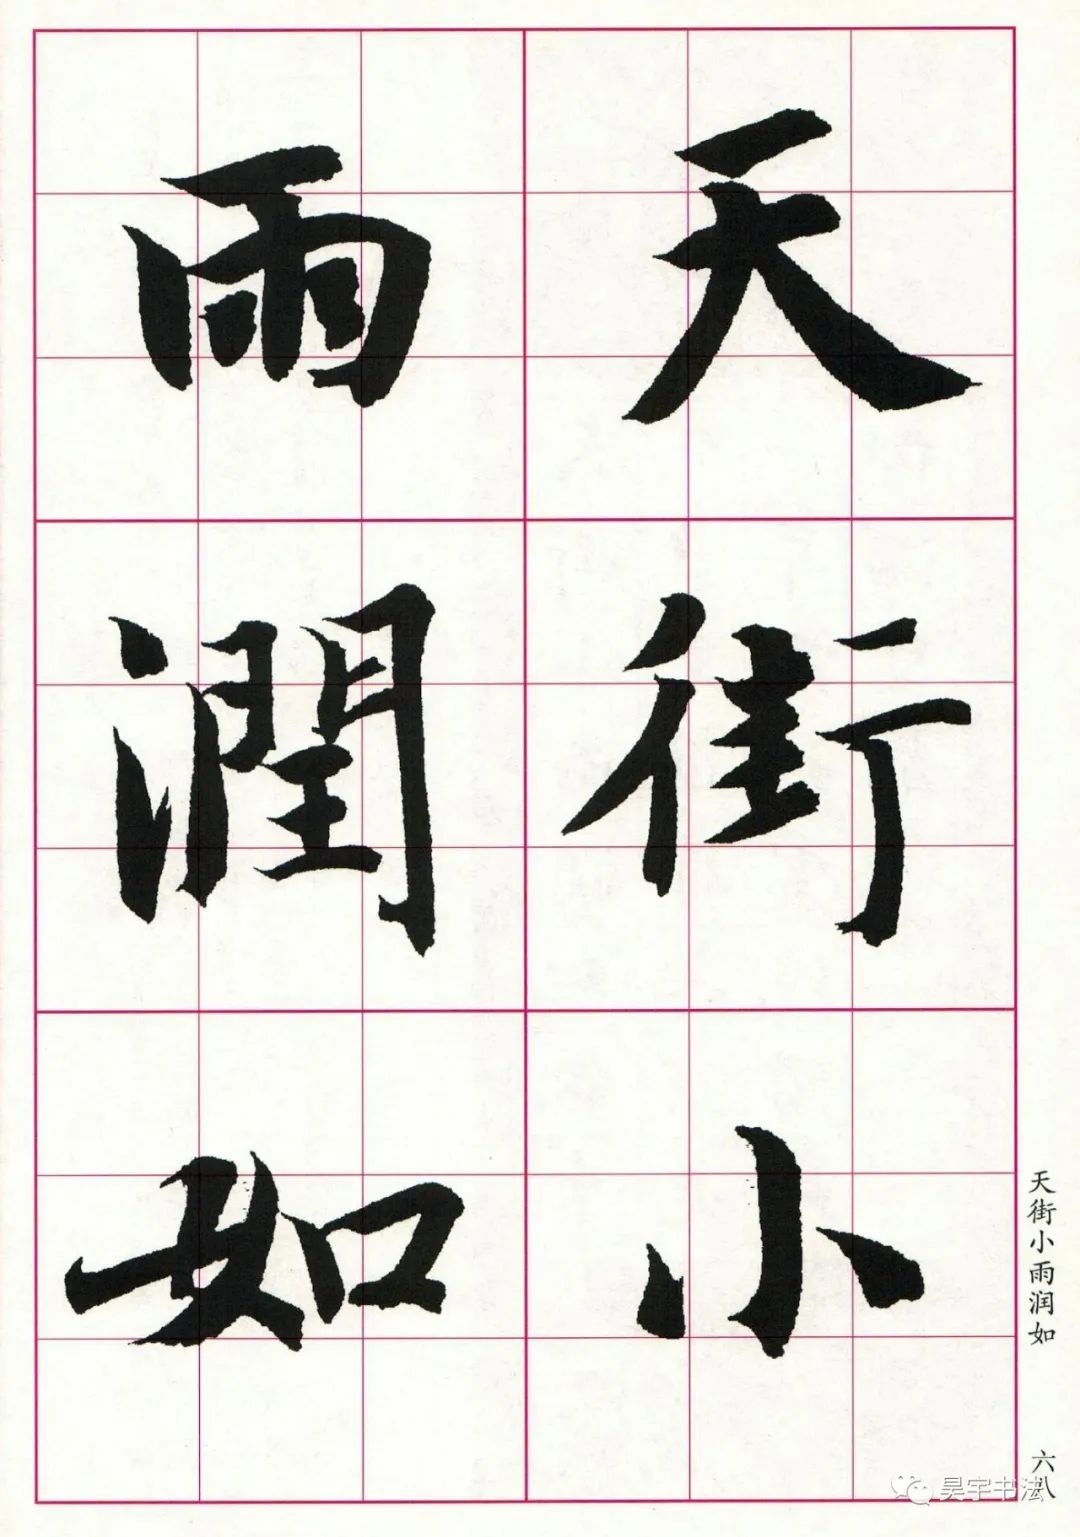 天街小
雨潤如
天街小雨润如
六八
昊宇书法